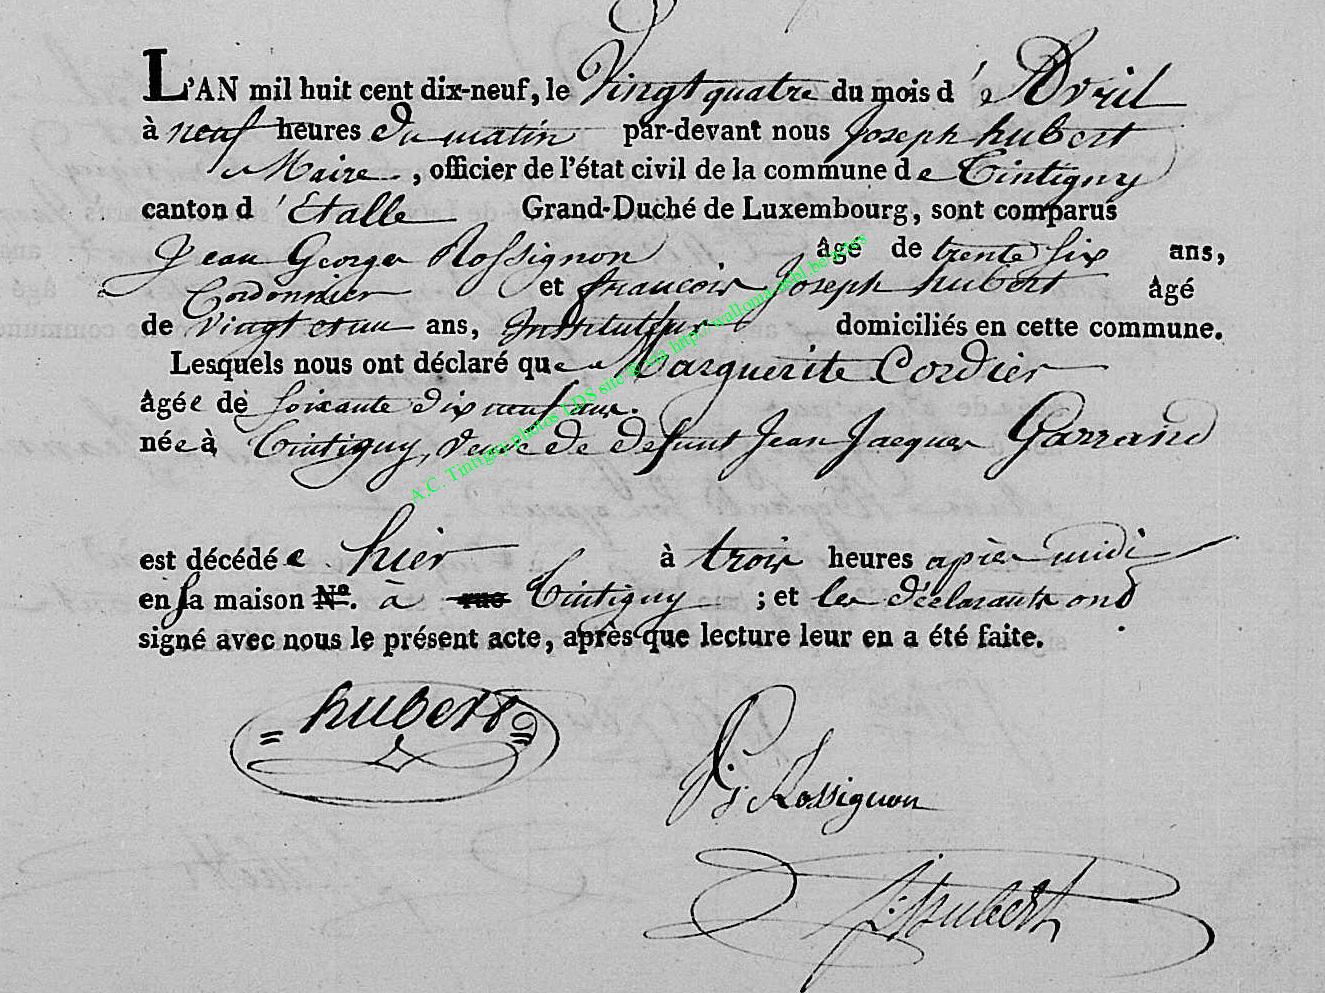 L'AN mil huit cent dix-neuf, le Vingt quatre du mois d'Avril
à neuf heures du matin par-devant nous Joseph hubert
Maire, officier de l'état civil de la commune de Tintigny
canton d'Etalle Grand-Duché de Luxembourg, sont comparus
Jean George Rossignon âgé de trente six ans,
Cordonnier et francois Joseph hubert âgé
de vingt et un ans, Instituteur domiciliés en cette commune.
Lesquels nous ont déclaré que Marguerite Cordier
âgée de soixante dix neuf ans.
née à Tintigny, veuve de defunt Jean Jacques Garrand
est décédée hier à trois heures après midi
en sa maison N°. à rue Tintigny ; et les déclarants ont
signé avec nous le présent acte, après que lecture leur en a été faite.
hubert
Rossignon
hubert
A.C. Tintigny photos LDS site